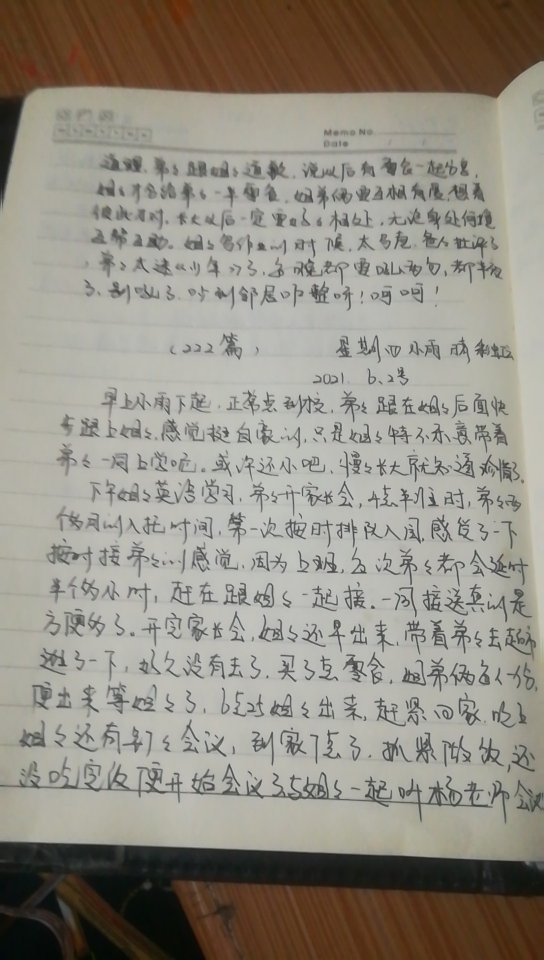 Memo No.
Date / /
道理，弟々跟姐々道歉，说以后有零食一起分享，
姐々才会给弟々一半零食，姐弟俩要互相尊重，想着
彼此才对，长大以后一定要好々相处，无论身处何境
互帮互助。姐々写作业的时候，太马虎，爸々批评了
弟々太淘，每晚都要吼两句，都半夜
了，别吼了，吵到邻居咋整呀！呵呵！
（222篇） 星期四 小雨 晴
2021. 6. 2号
早上小雨下起，正常点到校，弟々跟在姐々后面快
步跟上姐々，感觉挺自豪的，只是姐々特不乐意带着
弟々一同上学吧。或许还小吧，慢々长大就知道珍惜了。
下午姐々英语学习，弟々开家长会，4点半到时，弟々
入托时间，第一次按时排队入园，感受了一下
按时接弟々的感觉，因为上班，每次弟々都会延时
半个小时，赶在跟姐々一起接。一同接送真的是
方便多了。开完家长会，姐々还早出来，带着弟々去超市
逛了一下，好久没有去了，买了点零食，姐弟俩每人一份，
便出来等姐々了，6点25姐々出来，赶紧回家，晚上
姐々还有会议，到家7点了，抓紧做饭，还
没吃完饭便开始会议了与姐々一起听杨老师会议